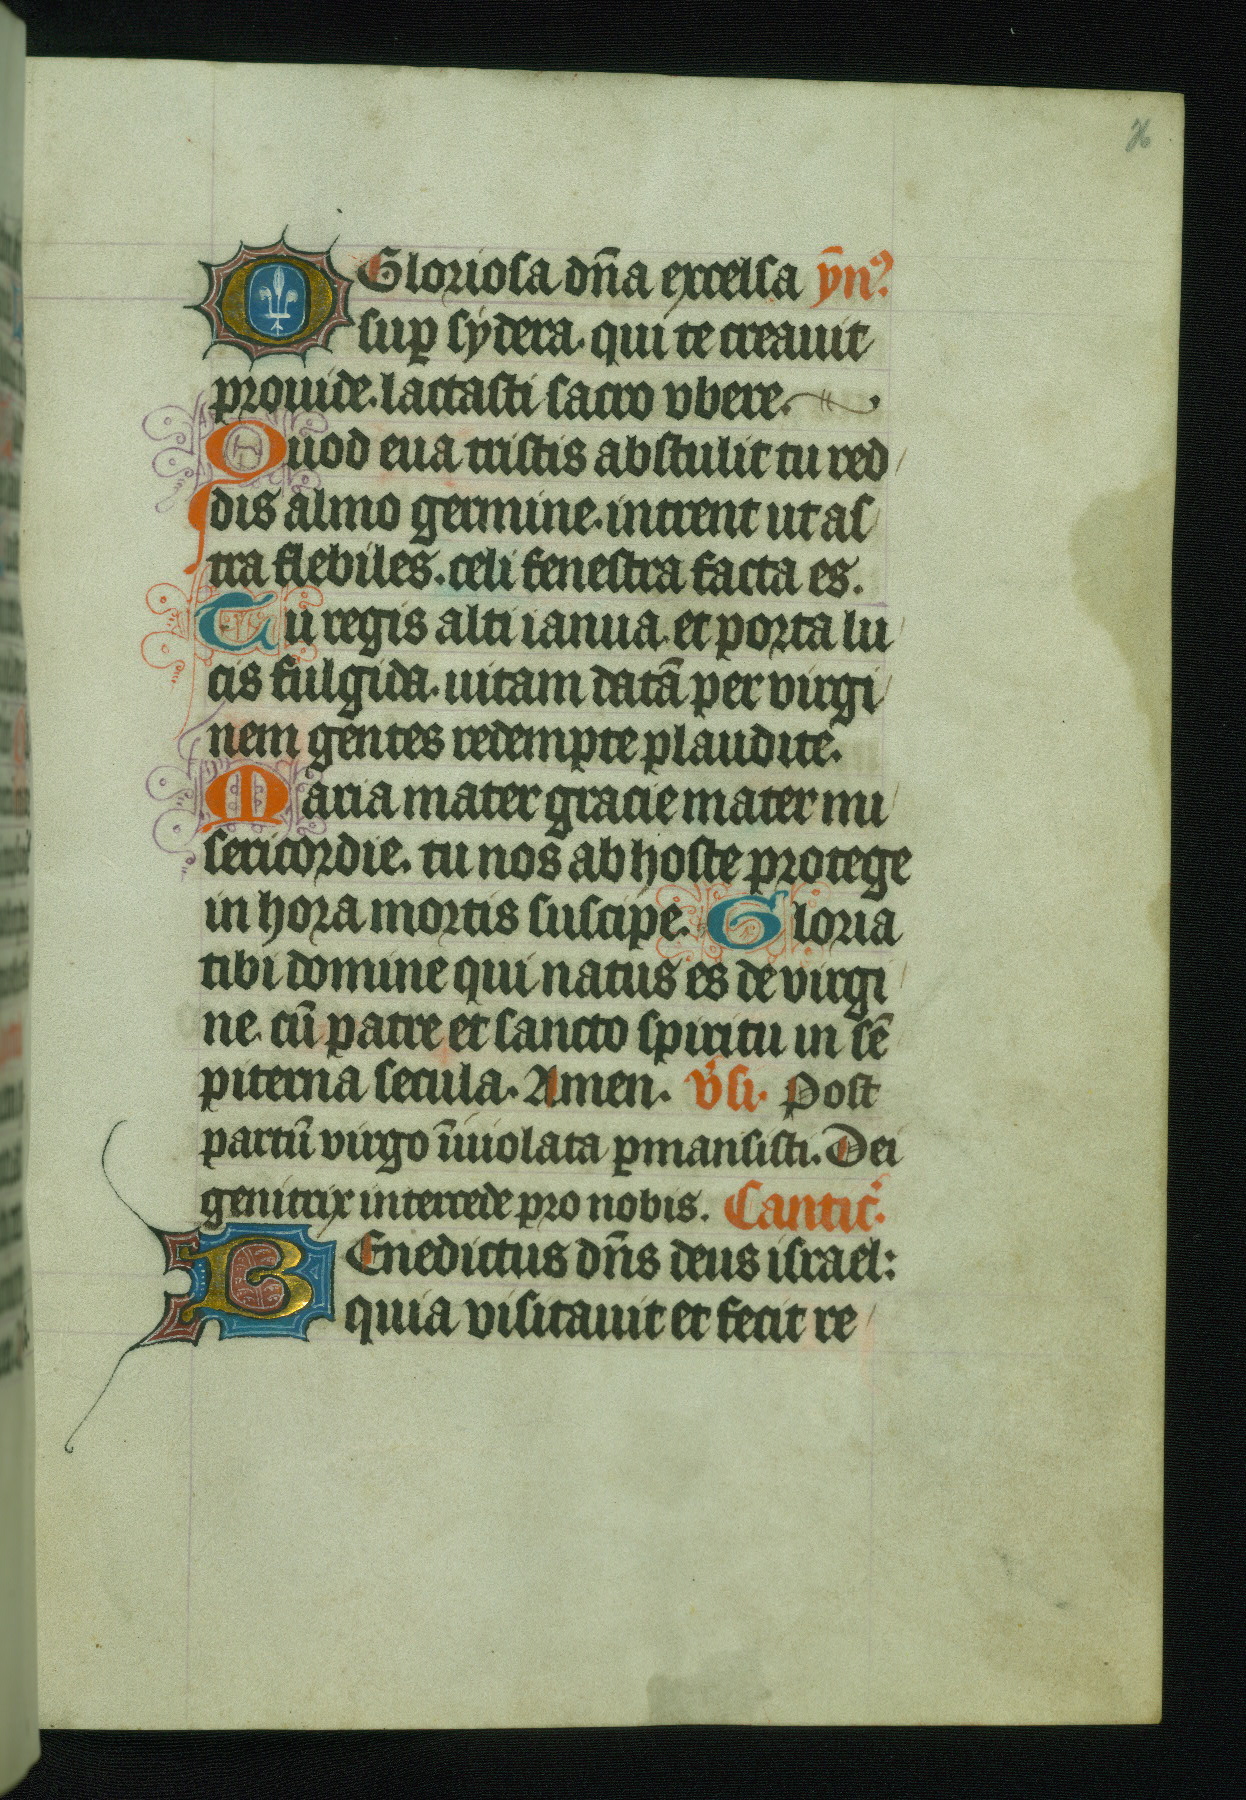 O Gloriosa dn̄a excelsa ȳn
suꝑ sydera. qui te creauit
prouide. lactasti sacro vbere.
Quod eua tristis abstulit tu red
dis almo germine. intrent ut as
tra flebiles. celi fenestra facta es.
Tu regis alti ianua. et porta lu
cis fulgida. uitam datā per virgi
nem gentes redempte plaudite.
Maria mater gracie mater mi
sericordie. tu nos ab hoste protege
in hora mortis suscipe. Gloria
tibi domine qui natus es de virgi
ne. cū patre et sancto spiritu in sē
piterna secula. Amen. v̉si. Post
partū virgo īuiolata ꝑmansisti. Dei
genitrix intercede pro nobis. Cantic̉.
BEnedictus dn̄s deus israel:
quia visitauit et fecit re